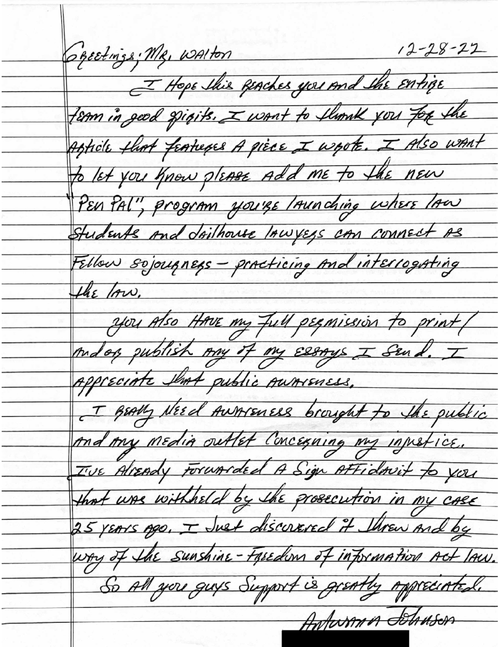 Greetings; Mr. Walton 12-28-22
I Hope this reaches you and the entire
team in good spirits. I want to thank you for the
Article that features A piece I wrote. I also want
to let you know please add me to the new
"Pen Pal", program you're launching where law
students and Jailhouse lawyers can connect as
Fellow sojourners - practicing and interrogating
the law.
You also Have my full permission to print/
and or publish any of my essays I send. I
appreciate that public awareness.
I Really Need Awareness brought to the public
and any media outlet concerning my injustice.
I've Already forwarded A Sign Affidavit to you
that was withheld by the prosecution in my case
25 years ago. I Just discovered it threw and by
way of the Sunshine - Freedom of information Act law.
So All you guys Support is greatly Appreciated.
Antwann Johnson